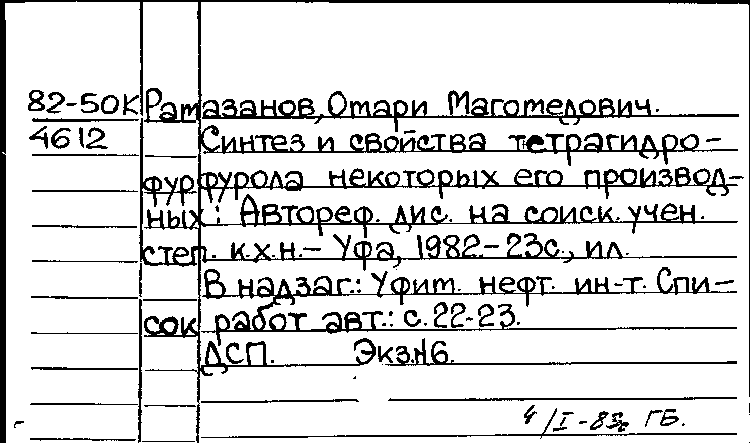 82-50К Рамазанов, Омари Магомедович.
4612 Синтез и свойства тетрагидро-
фурфурола некоторых его производ-
ных: Автореф. дис. на соиск. учен.
степ. к.х.н.- Уфа, 1982.- 23с., ил.
В надзаг.: Уфим. нефт. ин-т. Спи-
сок работ авт.: с. 22-23.
ДСП. Экз.№6.
4/I-83г ГБ.